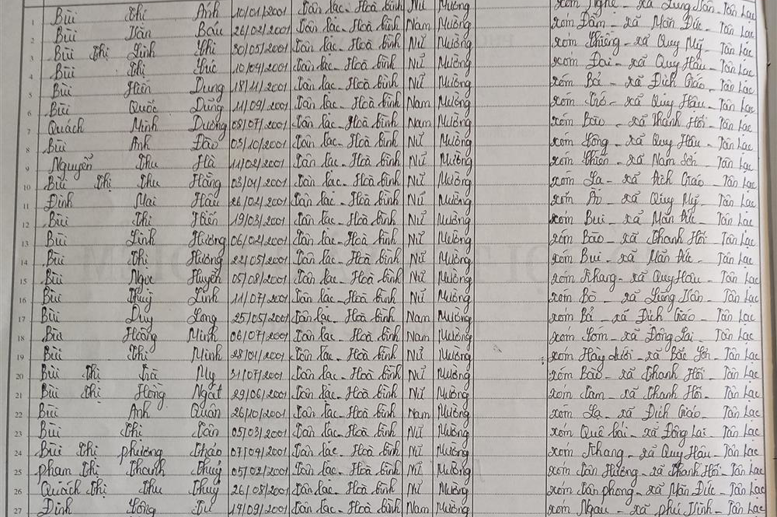 1 Bùi Thị Anh 10/01/2001 Tân Lạc - Hoà Bình Nữ Mường xóm Nghẹ - xã Lũng Vân - Tân Lạc
2 Bùi Văn Báu 26/02/2001 Tân Lạc - Hoà Bình Nam Mường xóm Đầm - xã Mãn Đức - Tân Lạc
3 Bùi Thị Linh Chi 20/05/2001 Tân Lạc - Hoà Bình Nữ Mường xóm - xã Quy Mỹ - Tân Lạc
4 Bùi Thị Cúc 10/04/2001 Tân Lạc - Hoà Bình Nữ Mường xóm Đai - xã Quy Hậu - Tân Lạc
5 Bùi Hiền Dung 18/11/2001 Tân Lạc - Hoà Bình Nữ Mường xóm Bả - xã Địch Giáo - Tân Lạc
6 Bùi Quốc Dũng 11/09/2001 Tân Lạc - Hoà Bình Nam Mường xóm - xã Quy Hậu - Tân Lạc
7 Quách Minh Dương 08/07/2001 Tân Lạc - Hoà Bình Nam Mường xóm Bào - xã Thanh Hối - Tân Lạc
8 Bùi Anh Đào 05/10/2001 Tân Lạc - Hoà Bình Nữ Mường xóm - xã Quy Hậu - Tân Lạc
9 Nguyễn Thu Hà 11/02/2001 Tân Lạc - Hoà Bình Nữ Mường xóm Chiến - xã Nam Sơn - Tân Lạc
10 Bùi Thị Thu Hằng 03/01/2001 Tân Lạc - Hoà Bình Nữ Mường xóm - xã Địch Giáo - Tân Lạc
11 Đinh Mai Hậu 26/02/2001 Tân Lạc - Hoà Bình Nữ Mường xóm - xã Quy Mỹ - Tân Lạc
12 Bùi Thị Hiền 19/03/2001 Tân Lạc - Hoà Bình Nữ Mường xóm Bui - xã Mãn Đức - Tân Lạc
13 Bùi Linh Hương 06/02/2001 Tân Lạc - Hoà Bình Nữ Mường xóm Bào - xã Thanh Hối - Tân Lạc
14 Bùi Thị Hương 22/05/2001 Tân Lạc - Hoà Bình Nữ Mường xóm Bui - xã Mãn Đức - Tân Lạc
15 Bùi Ngọc Huyền 05/08/2001 Tân Lạc - Hoà Bình Nữ Mường xóm Khang - xã Quy Hậu - Tân Lạc
16 Bùi Thuỳ Linh 11/07/2001 Tân Lạc - Hoà Bình Nữ Mường xóm Bò - xã Lũng Vân - Tân Lạc
17 Bùi Duy Long 25/05/2001 Tân Lạc - Hoà Bình Nam Mường xóm Bả - xã Địch Giáo - Tân Lạc
18 Bùi Hoàng Minh 06/07/2001 Tân Lạc - Hoà Bình Nam Mường xóm - xã Đông Lai - Tân Lạc
19 Bùi Thị Minh 28/01/2001 Tân Lạc - Hoà Bình Nữ Mường xóm Hày Dưới - xã Bắc Sơn - Tân Lạc
20 Bùi Thị Trà My 31/07/2001 Tân Lạc - Hoà Bình Nữ Mường xóm Bào - xã Thanh Hối - Tân Lạc
21 Bùi Thị Hồng Ngát 29/06/2001 Tân Lạc - Hoà Bình Nữ Mường xóm Tam - xã Thanh Hối - Tân Lạc
22 Bùi Anh Quân 26/10/2001 Tân Lạc - Hoà Bình Nam Mường xóm - xã Địch Giáo - Tân Lạc
23 Bùi Thị Tân 05/03/2001 Tân Lạc - Hoà Bình Nữ Mường xóm Quê Bái - xã Đông Lai - Tân Lạc
24 Bùi Thị Phương Thảo 07/09/2001 Tân Lạc - Hoà Bình Nữ Mường xóm Khang - xã Quy Hậu - Tân Lạc
25 Phạm Thị Thanh Thuỷ 05/02/2001 Tân Lạc - Hoà Bình Nữ Mường xóm Tân Hương - xã Thanh Hối - Tân Lạc
26 Quách Thị Thu Thuỷ 26/08/2001 Tân Lạc - Hoà Bình Nữ Mường xóm Tân Phong - xã Mãn Đức - Tân Lạc
27 Đinh Công Tú 19/09/2001 Tân Lạc - Hoà Bình Nam Mường xóm Ngau - xã Phú Vinh - Tân Lạc